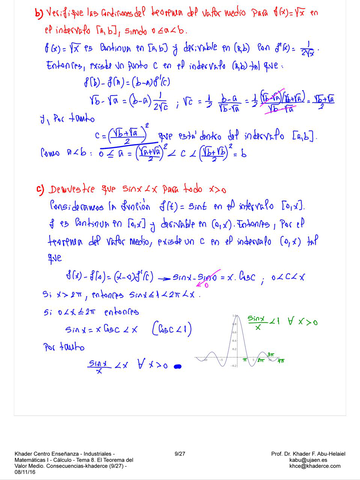 b) Verifique las condiciones del teorema del valor medio para f(x)=√x en
el intervalo [a,b], siendo 0≤a<b.
f(x)=√x es continua en [a,b] y derivable en (a,b) con f'(x)= 1/2√x
Entonces, existe un punto c en el intervalo (a,b) tal que:
f(b)-f(a)=(b-a)f'(c)
√b-√a=(b-a) 1/2√c ; √c = 1/2 (b-a)/(√b-√a) = 1/2 (√b-√a)(√b+√a)/(√b-√a) = (√b+√a)/2
y, por tanto
c=((√b+√a)/2)² que está dentro del intervalo [a,b].
Como a<b: 0≤a=((√a+√a)/2)² < c < ((√b+√b)/2)² = b
c) Demuestre que sinx<x para todo x>0
Consideramos la función f(t)=sint en el intervalo [0,x].
f es continua en [0,x] y derivable en (0,x). Entonces, por el
teorema del valor medio, existe un c en el intervalo (0,x) tal
que
f(x)-f(0)=(x-0)f'(c) → sinx-sin0=x·cosc ; 0<c<x
0
Si x>2π, entonces sinx≤1<2π<x.
Si 0<x≤2π entonces
sinx=x cosc<x (cosc<1)
Por tanto
sinx/x <x ∀x>0
sinx/x <1 ∀x>0
Khader Centro Enseñanza - Industriales -
Matemáticas I - Cálculo - Tema 8. El Teorema del
Valor Medio. Consecuencias-khaderce (9/27) -
08/11/16
9/27
Prof. Dr. Khader F. Abu-Helaiel
kabu@ujaen.es
khce@khaderce.com